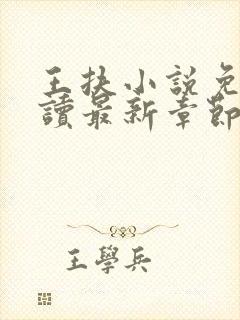 王扶小説免
讀最新章節
王學兵